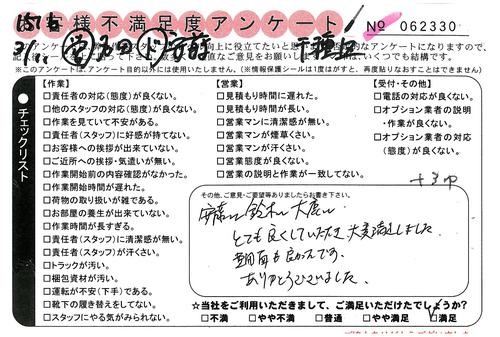 お客様不満足度アンケート
№ 062330
※このアンケートは、アンケート目的以外には使用いたしません。(※情報保護シールは1度はがすと、再度貼りなおすことはできません)
チェックリスト
【作業】
□責任者の対応(態度)が良くない。
□他のスタッフの対応(態度)が良くない。
□作業を見ていて不安がある。
□責任者(スタッフ)に好感が持てない。
□お客様への挨拶が出来ていない。
□ご近所への挨拶・気遣いが無い。
□作業開始前の内容確認がなかった。
□作業開始時間が遅れた。
□荷物の取り扱いが雑である。
□お部屋の養生が出来ていない。
□作業時間が長すぎる。
□責任者(スタッフ)に清潔感が無い。
□責任者(スタッフ)が汗くさい。
□トラックが汚い。
□梱包資材が汚い。
□運転が不安(下手)である。
□靴下の履き替えをしてない。
□スタッフにやる気がみられない。
【営業】
□見積もり時間に遅れた。
□見積もり時間が長い。
□営業マンに清潔感が無い。
□営業マンが煙草くさい。
□営業マンが汗くさい。
□営業態度が良くない。
□営業の説明と作業が一致してない。
【受付・その他】
□電話の対応が良くない。
□オプション業者の説明
・作業が良くない。
□オプション業者の対応
(態度)が良くない。
その他、ご意見・ご要望等ありましたらお書き下さい。
とても良くしていただき大変満足しました。
ありがとうございました。
☆当社をご利用いただきまして、ご満足いただけたでしょうか?
□不満 □やや不満 □普通 □やや満足 □満足